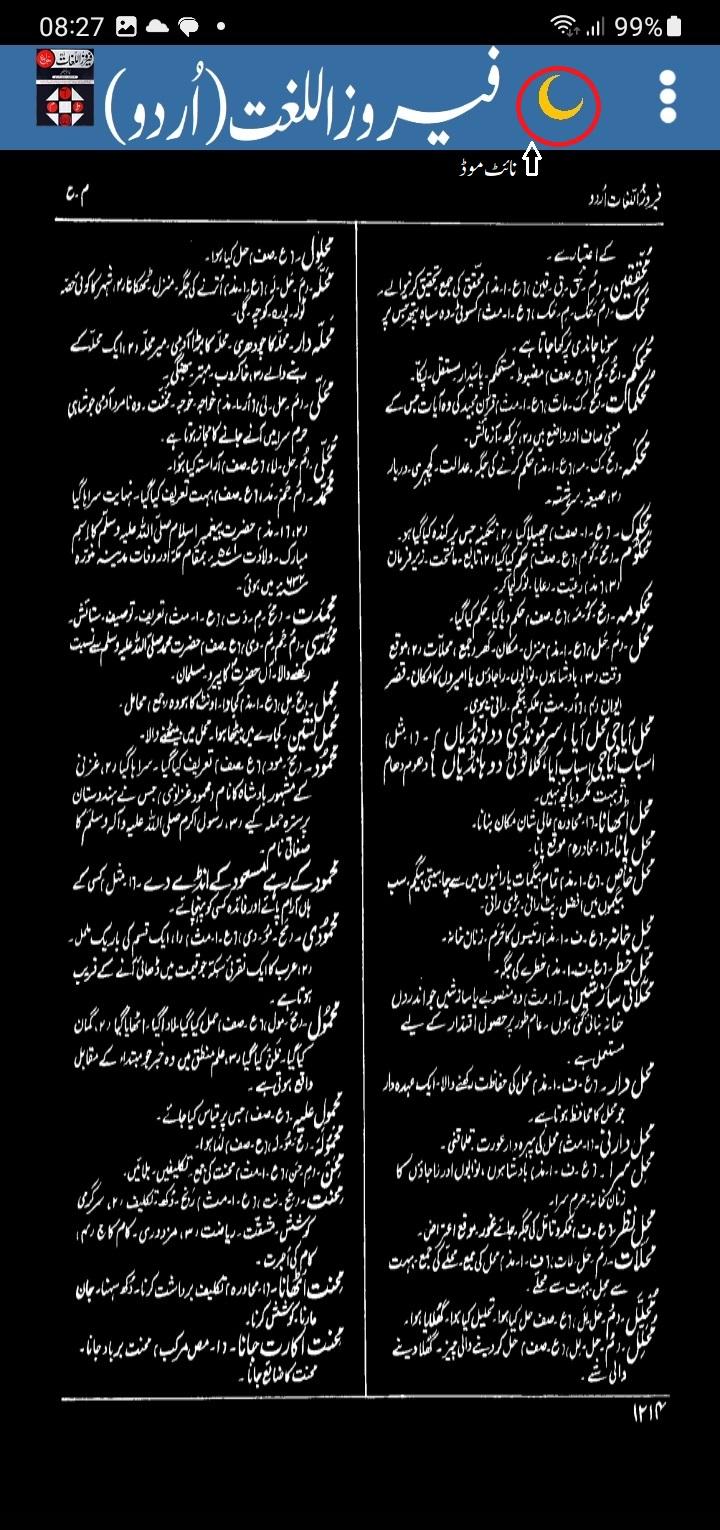 08:27
99%
فیروز اللغت (اُردو)
نائٹ موڈ
فیروزُ اللّغات اُردو
م۔ع
کے اعتبار سے۔
محققین۔
سونا چاندی پرکھا جاتا ہے۔
محکم۔ (ع۔صف) مضبوط۔ مستحکم۔ پائیدار۔ مستقل۔ پکّا۔
معنی صاف اور واضع ہیں (۲) پرکھ۔ آزمائش۔
محکمہ۔ (ع۔ا۔مذ) حکم کرنے کی جگہ۔ عدالت۔ کچہری۔ دربار
(۲) صیغہ۔ سررشتہ۔
محکوک۔ (ع۔ا۔صف) چھیلا گیا (۲) نگینہ جس پر کندہ کیا گیا ہو۔
محکوم (ع۔صف) حکم کیا گیا (۲) تابع۔ ماتحت۔ زیر فرمان
(۳) (مذ) رعیّت۔ رعایا۔ نوکر چاکر۔
محکومہ۔ (ع۔صف) حکم دیا گیا۔ حکم کیا گیا۔
محل۔ (ع۔ا۔مذ) منزل۔ مکان۔ گھر (جمع) محلّات (۲) موقع
وقت (۳) بادشاہوں۔ نوابوں۔ راجاؤں یا امیروں کا مکان۔ قصر
ایوان (۴) (اُر۔مث) ملکہ۔ بیگم۔ رانی۔ بیوی۔
تو بہت مگر دیا کچھ نہیں۔
محل اٹھانا۔ (۱۔محاورہ) عالی شان مکان بنانا۔
محل پانا۔ (۱۔محاورہ) موقع پانا۔
محل خاص۔ (ع۔ا۔مذ) تمام بیگمات یا رانیوں میں سے چاہیتی بیگم۔ سب
بیگموں میں افضل۔ پٹ رانی۔ بڑی رانی۔
محل خانہ۔ (ع۔ف۔ا۔مذ) رئیسوں کا حرم۔ زنان خانہ۔
محل خطر۔ (ع۔ف۔ا۔مذ) خطرے کی جگہ۔
محلّاتی سازشیں۔ (۱۔مث) وہ منصوبے یا سازشیں جو اندرون
خانہ بنائی گئی ہوں۔ عام طور پر حصول اقتدار کے لیے
مستعمل ہے۔
محل دار۔ (ع۔ف۔ا۔مذ) محل کی حفاظت رکھنے والا۔ ایک عہدہ دار
جو محل کا محافظ ہوتا ہے۔
محل دارنی۔ (۱۔مث) محل کی پہرہ دار عورت۔ قلماقنی۔
محل سرا۔ (ع۔ف۔ا۔مذ) بادشاہوں، نوابوں اور راجاؤں کا
زنان خانہ۔ حرم سرا۔
محل نظر۔ (ع۔ف) فکر و تامّل کی جگہ۔ جائے غور۔ موقع اعتراض۔
محلّات۔ (ف۔ا۔مذ) محل کی جمع۔ محلے کی جمع۔ بہت
سے محل۔ بہت سے محلے۔
محلّل۔ (ع۔صف) حل کیا ہوا۔ تحلیل کیا ہوا۔ گھلایا ہوا۔
محلّل۔ (ع۔صف) حل کر دینے والی چیز۔ گھلا دینے
والی شے۔
محلول۔ (ع۔صف) حل کیا ہوا۔
محلّہ۔ (ع۔ا۔مذ) اُترنے کی جگہ۔ منزل۔ ٹھکانا (۲) شہر کا کوئی حصّہ
ٹولہ۔ پورہ۔ کوچہ۔ گلی۔
محلّہ دار۔ محلّہ کا چودھری۔ محلّہ کا بڑا آدمی۔ میر محلّہ (۲) ایک محلّہ کے
رہنے والے (۳) خاکروب۔ مہتر۔ بھنگی۔
محلّی۔ خواجہ۔ خوجہ۔ مخنث۔ وہ نامرد آدمی جو شاہی
حرم سرا میں آنے جانے کا مجاز ہوتا ہے۔
محلّٰی۔ (ع۔صف) آراستہ کیا ہوا۔
محمّد۔ (ع۔صف) بہت تعریف کیا گیا۔ نہایت سراہا گیا
(۲) (۱۔مذ) حضرت پیغمبر اسلام صلّی اللہ علیہ وسلم کا اسم
مبارک۔ ولادت ۵۷۱ء بمقام مکّہ اور وفات مدینہ منوّرہ
۶۳۲ء میں ہوئی۔
محمدت۔ (ع۔ا۔مث) تعریف۔ توصیف۔ ستائش۔
محمّدی۔ (ع۔صف) حضرت محمد صلی اللہ علیہ وسلم سے نسبت
رکھنے والا۔ آں حضرتؐ کا پیرو۔ مسلمان۔
محمل۔ (ع۔ا۔مذ) کجاوا۔ اونٹ کا ہودہ (جمع) محامل۔
محمل نشین۔ کجاوے میں بیٹھا ہوا۔ محمل میں بیٹھنے والا۔
محمود۔ (ع۔صف) تعریف کیا گیا۔ سراہا گیا (۲) غزنی
کے مشہور بادشاہ کا نام (محمود غزنوی) جس نے ہندوستان
پر سترہ حملہ کیے (۳) رسول اکرم صلی اللہ علیہ وآلہ وسلم کا
صفاتی نام۔
محمود کے رہے مسعود کے انڈے دے۔ (۱۔مثل) کسی کے
ہاں آرام پائے اور فائدہ کسی کو پہنچائے۔
محمودی۔ (ع۔ا۔مث) (۱) ایک قسم کی باریک ململ۔
(۲) عرب کا ایک نقرئی سکّہ جو قیمت میں ڈھائی آنے کے قریب
ہوتا ہے۔
محمول۔ (ع۔صف) حمل کیا گیا۔ لادا گیا۔ اٹھایا گیا (۲) گمان
کیا گیا۔ ظن کیا گیا (۳) علم منطق میں وہ خبر جو مبتداء کے مقابل
واقع ہوتی ہے۔
محمول علیہ۔ (ع۔صف) جس پر قیاس کیا جائے۔
محمولہ۔ (ع۔صف) لدا ہوا۔
محن۔ (ع۔ا۔مث) محنت کی جمع۔ تکلیفیں۔ بلائیں۔
محنت۔ (ع۔ا۔مث) رنج۔ دکھ۔ تکلیف (۲) سرگرمی
کوشش۔ مشقّت۔ ریاضت (۳) مزدوری۔ کام کاج (۴)
کام کی اُجرت۔
محنت اٹھانا۔ (۱۔محاورہ) تکلیف برداشت کرنا۔ دکھ سہنا۔ جان
مارنا۔ کوشش کرنا۔
محنت اکارت جانا۔ (۱۔مص مرکب) محنت برباد جانا۔
محنت کا ضائع جانا۔
۱۲۱۴